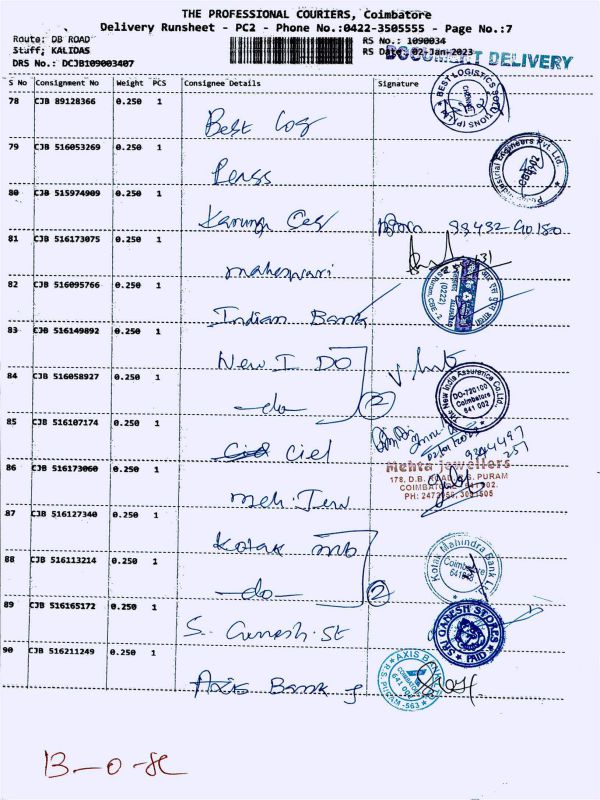 THE PROFESSIONAL COURIERS, Coimbatore
Delivery Runsheet - PC2 - Phone No.:0422-3505555 - Page No.:7
Route: DB ROAD
Staff; KALIDAS
DRS No.: DCJB109003407
RS No.: 1090034
RS D 02-Jan-2023
DOCUMENT DELIVERY
S No Consignment No Weight PCS Consignee Details Signature
78 CJB 89128366 0.250 1
Best Log
BEST LOGISTICS
79 CJB 516053269 0.250 1
Engineers Pvt. Ltd
80 CJB 515974909 0.250 1
81 CJB 516173075 0.250 1
maheswari
82 CJB 516095766 0.250 1
Indian Bank
83 CJB 516149892 0.250 1
New I DO
84 CJB 516058927 0.250 1
-do- 2
The New India Assurance Co.Ltd.
DO-720100
Coimbatore
641 002
85 CJB 516107174 0.250 1
Ciel
86 CJB 516173060 0.250 1
Meh. Jew
Mehta Jewellers
178, D.B. PURAM
COIMBATORE
PH:
87 CJB 516127340 0.250 1
Kotak mb
88 CJB 516113214 0.250 1
-do- 2
Kotak Mahindra Bank
Coimbatore
89 CJB 516165172 0.250 1
S. Ganesh. St
SRI GANESH STORES
PAID
90 CJB 516211249 0.250 1
Axis Bank
AXIS BANK
13-0-sc